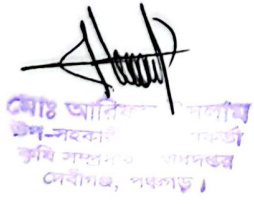 মোঃ আরিফ ইসলাম
উপ-সহকারী কর্মকর্তা
কৃষি সম্প্রসারণ অধিদপ্তর
দেবীগঞ্জ, পঞ্চগড়।